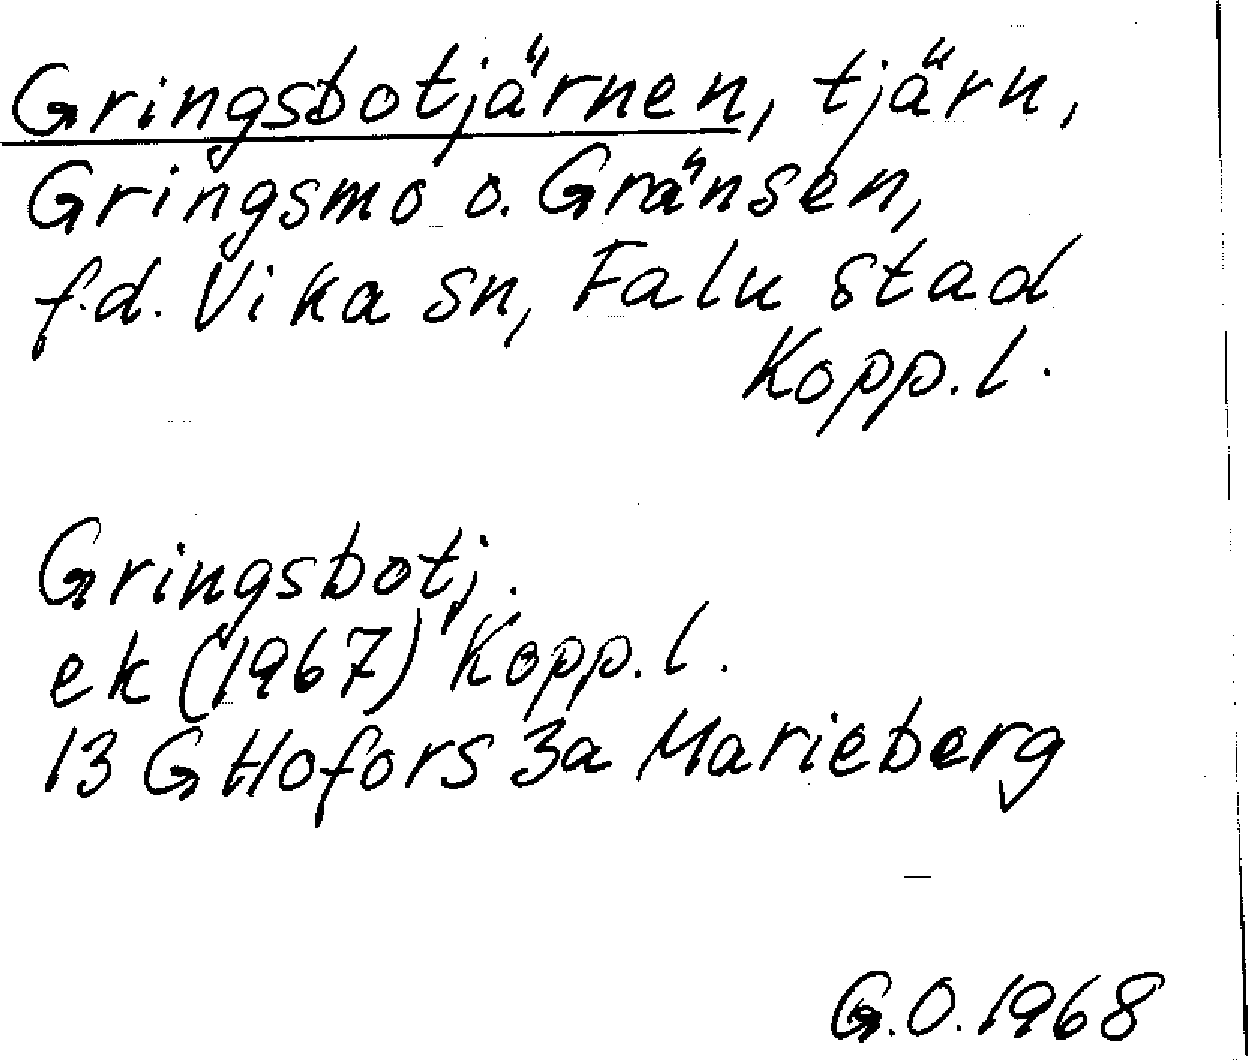 Gringsbotjärnen, tjärn,
Gringsmo o. Gränsen,
f.d. Vika sn, Falu stad
Kopp. l.
Gringsbotj.
ek (1967) Kopp. l.
13 G Hofors 3a Marieberg
G.O. 1968